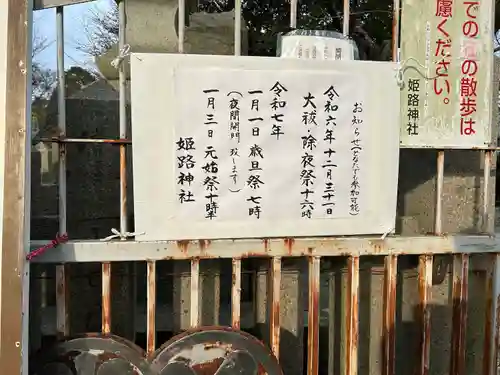 お知らせ(どなたでも参列可能)
令和六年十二月三十一日
大祓・除夜祭十六時
令和七年
一月一日 歳旦祭 七時
(夜間開門 致します)
一月三日 元始祭十時半
姫路神社
での犬の散歩は
慮ください。
姫路神社